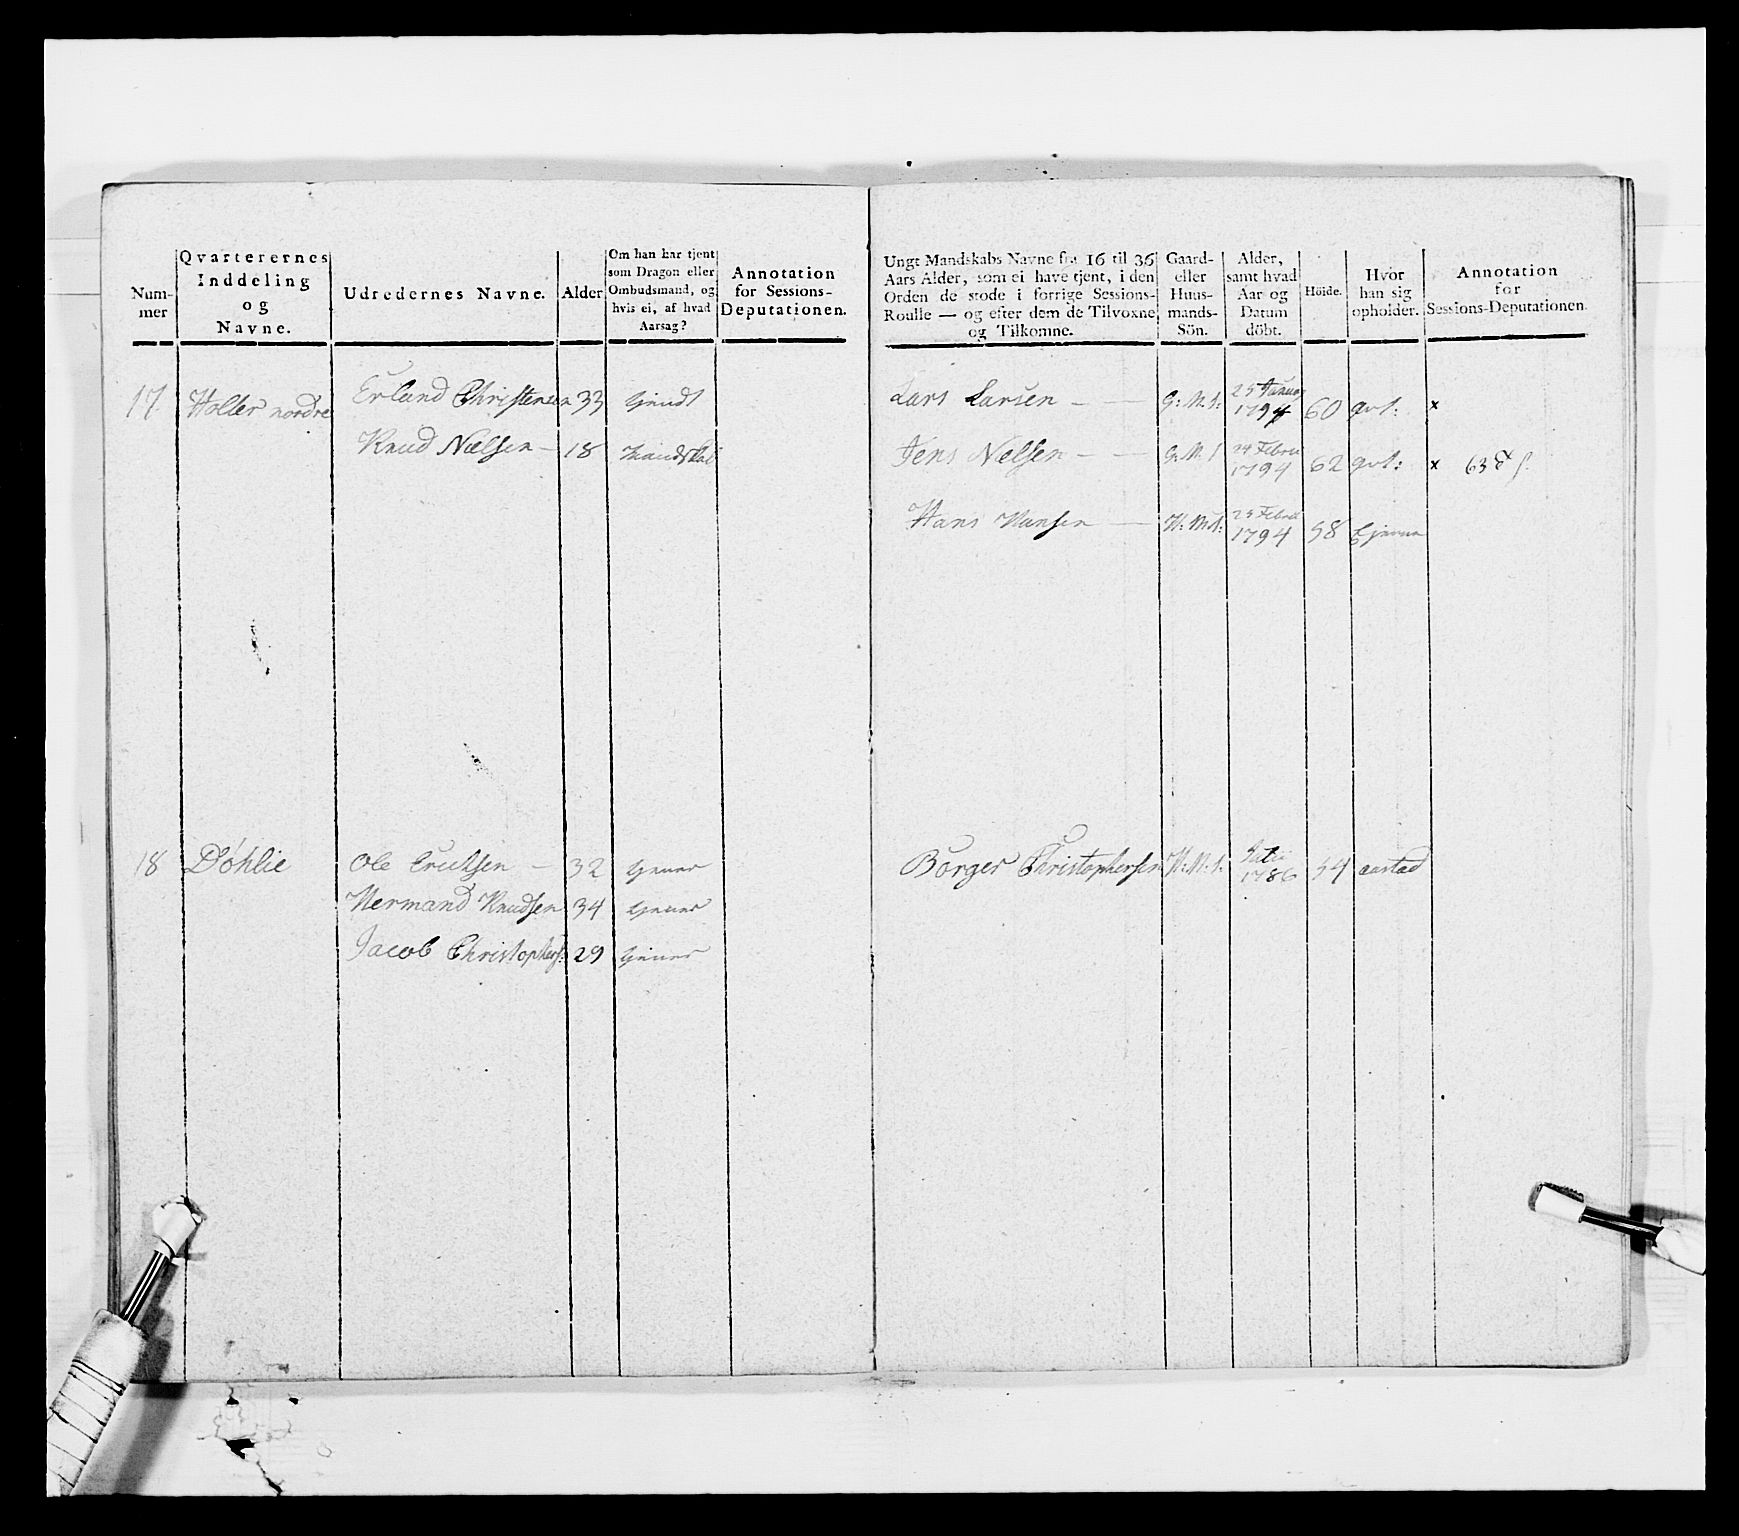 Num-
mer
Qvarterernes
Inddeling
og
Navne.
Udredernes Navne.
Alder
Om han har tjent
som Dragon eller
Ombudsmand, og
hvis ei, af hvad
Aarsag?
Annotation
for Sessions-
Deputationen.
17 Holter nordre Erland Christensen 33 tjendt
Knud Nielsen – 18 Mandskab
18 Döhlie Ole Ericksen – 32 tjener
Hermand Knudsen 34 tjener
Jacob Christophers: 29 tjener
Ungt Mandskabs Navne fra 16 til 36
Aars Alder, som ei have tjent, i den
Orden de stode i forrige Sessions-
Roulle — og efter dem de Tilvoxne
og Tilkomne.
Gaard-
eller
Huus-
mands-
Sön.
Alder,
samt hvad
Aar og
Datum
döbt.
Höide.
Hvor
han sig
opholder.
Annotation
for
Sessions-Deputationen.
Lars Larsen – – G: M: S: 25 Januar 1794 60 qvt: x
Jens Nielsen – – G: M: S 24 Febru 1794 62 qvt: x 63
Hans Hansen – H: M: S: 25 Febru 1794 58
Börger Christophersen H: M: S: Julii 1786 54 aastad